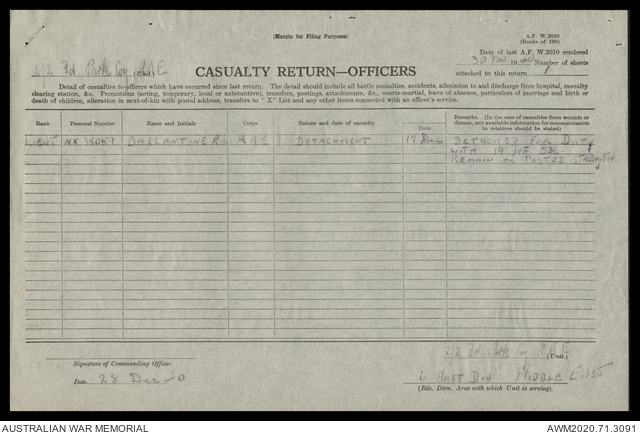 (Margin for Filing Purposes)
A.F. W.3010
(Books of 100)
2/2 Fd. Park Coy R.A.E (Unit.)
CASUALTY RETURN—OFFICERS
Date of last A.F. W.3010 rendered
30 Nov 1940 Number of sheets
attached to this return
Detail of casualties to officers which have occurred since last return. The detail should include all battle casualties, accidents, admission to and discharge from hospital, casualty
clearing station, &c. Promotions (acting, temporary, local or substantive), transfers, postings, attachments, &c., courts-martial, leave of absence, particulars of marriage and birth or
death of children, alteration in next-of-kin with postal address, transfers to "X" List and any other items connected with an officer's service.
Rank Personal Number Name and Initials Corps Nature and date of casualty Date Remarks. (In the case of casualties from wounds or disease, any available information for communication to relatives should be stated)
LIEUT NX 35057 BALLANTINE R. RAE DETACHMENT 17 Dec DETACHED FOR DUTY
WITH 19 INF BDE
REMAIN ON POSTED STRENGTH
2/2 Fd. Park Coy R.A.E (Unit.)
Signature of Commanding Officer.
Date 28 Dec 40
6 AUST DIV MIDDLE EAST
(Bde. Divn. Area with which Unit is serving).
AUSTRALIAN WAR MEMORIAL
AWM2020.71.3091